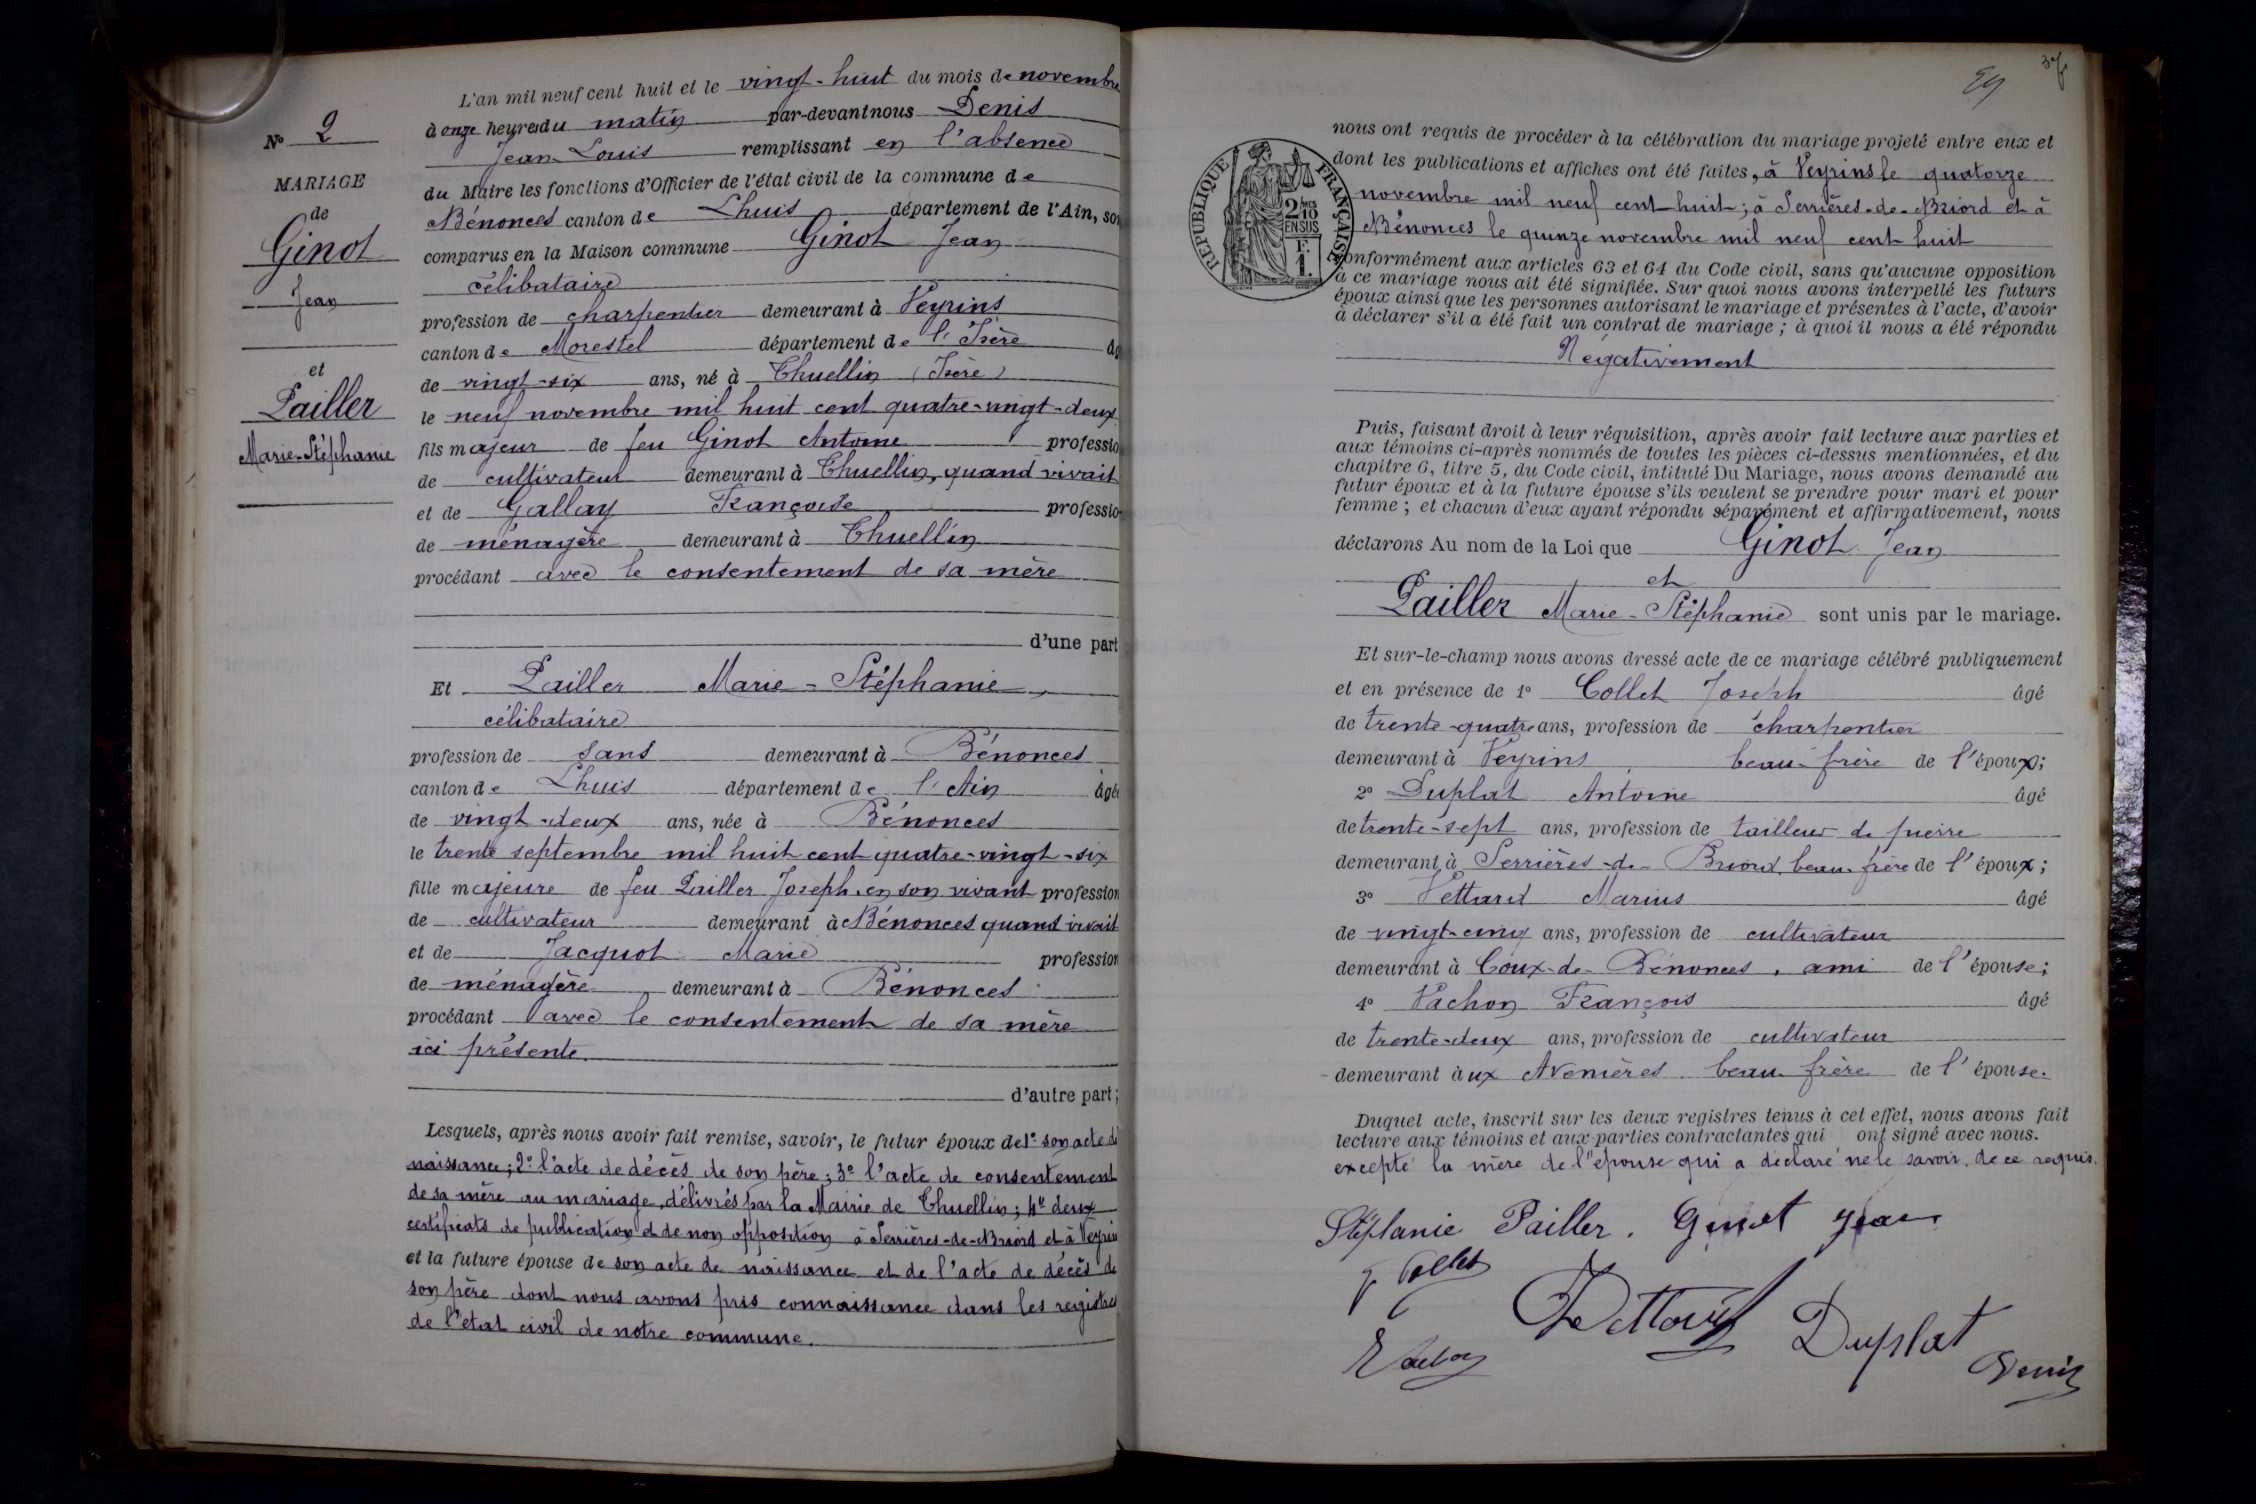 N° 2
MARIAGE
de
Ginot
Jean
et
Pailler
Marie-Stéphanie
L'an mil neuf cent huit et le vingt-huit du mois de novembre
à onze heures du matin par-devant nous Denis
Jean-Louis remplissant en l'absence
du Maire les fonctions d'Officier de l'état civil de la commune de
Bénonces canton de Lhuis département de l'Ain, son
comparus en la Maison commune Ginot Jean
célibataire
profession de charpentier demeurant à Veyrins
canton de Morestel département de l'Isère âg
de vingt-six ans, né à Thuellin (Isère)
le neuf novembre mil huit cent quatre-vingt-deux
fils majeur de feu Ginot Antoine professio
de cultivateur demeurant à Thuellin, quand vivait
et de Gallay Françoise professio
de ménagère demeurant à Thuellin
procédant avec le consentement de sa mère
d'une part
Et Pailler Marie-Stéphanie,
célibataire
profession de sans demeurant à Bénonces
canton de Lhuis département de l'Ain âgé
de vingt-deux ans, née à Bénonces
le trente septembre mil huit cent quatre-vingt-six
fille majeure de feu Pailler Joseph, en son vivant profession
de cultivateur demeurant à Bénonces quand vivait
et de Jacquot Marie profession
de ménagère demeurant à Bénonces
procédant avec le consentement de sa mère
ici présente.
d'autre part;
Lesquels, après nous avoir fait remise, savoir, le futur époux de 1° son acte de
naissance; 2° l'acte de décès de son père; 3° l'acte de consentement
de sa mère au mariage, délivrés par la Mairie de Thuellin; 4° deux
certificats de publication et de non opposition à Serrières-de-Briord et à Veyrin
et la future épouse de son acte de naissance et de l'acte de décès de
son père dont nous avons pris connaissance dans les registres
de l'état civil de notre commune.
37
RÉPUBLIQUE FRANÇAISE
2/10 EN SUS
F. 1.
nous ont requis de procéder à la célébration du mariage projeté entre eux et
dont les publications et affiches ont été faites, à Veyrins le quatorze
novembre mil neuf cent huit; à Serrières-de-Briord et à
Bénonces le quinze novembre mil neuf cent huit
conformément aux articles 63 et 64 du Code civil, sans qu'aucune opposition
à ce mariage nous ait été signifiée. Sur quoi nous avons interpellé les futurs
époux ainsi que les personnes autorisant le mariage et présentes à l'acte, d'avoir
à déclarer s'il a été fait un contrat de mariage; à quoi il nous a été répondu
Négativement
Puis, faisant droit à leur réquisition, après avoir fait lecture aux parties et
aux témoins ci-après nommés de toutes les pièces ci-dessus mentionnées, et du
chapitre 6, titre 5, du Code civil, intitulé Du Mariage, nous avons demandé au
futur époux et à la future épouse s'ils veulent se prendre pour mari et pour
femme; et chacun d'eux ayant répondu séparément et affirmativement, nous
déclarons Au nom de la Loi que Ginot Jean
et
Pailler Marie-Stéphanie sont unis par le mariage.
Et sur-le-champ nous avons dressé acte de ce mariage célébré publiquement
et en présence de 1° Collet Joseph âgé
de trente-quatre ans, profession de charpentier
demeurant à Veyrins, beau-frère de l'époux;
2° Duplat Antoine âgé
de trente-sept ans, profession de tailleur de pierre
demeurant à Serrières-de-Briord, beau-frère de l'époux;
3° Vettard Marius âgé
de vingt-cinq ans, profession de cultivateur
demeurant à Coux-de-Bénonces, ami de l'épouse;
4° Vachon François âgé
de trente-deux ans, profession de cultivateur
demeurant aux Avenières, beau-frère de l'épouse.
Duquel acte, inscrit sur les deux registres tenus à cet effet, nous avons fait
lecture aux témoins et aux parties contractantes qui ont signé avec nous.
excepté la mère de l'épouse qui a déclaré ne le savoir, de ce requis.
Stéphanie Pailler. Ginot Jean
J Collet
Vettard Duplat
Vachon Denis